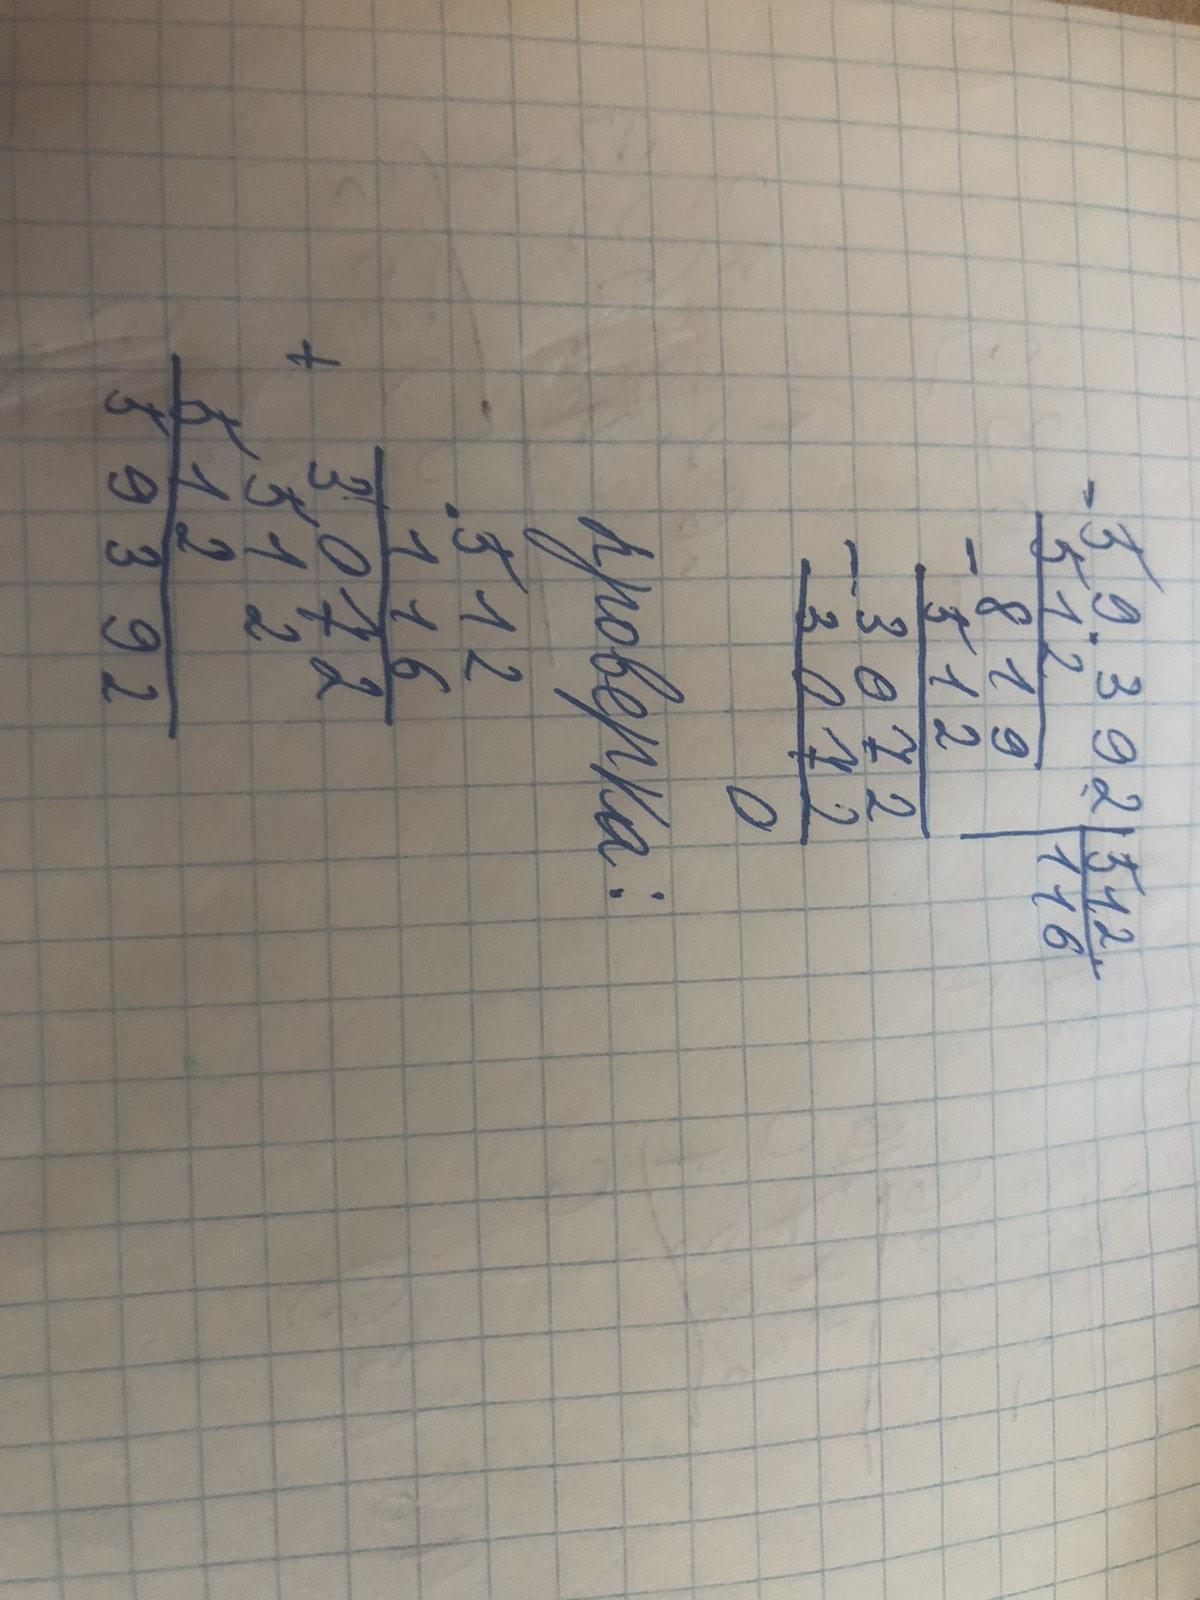 - 59.392 | 512
512 | 116
- 819
512
- 3072
3072
0
Проверка:
.512
116
+ 3072
512
512
59392